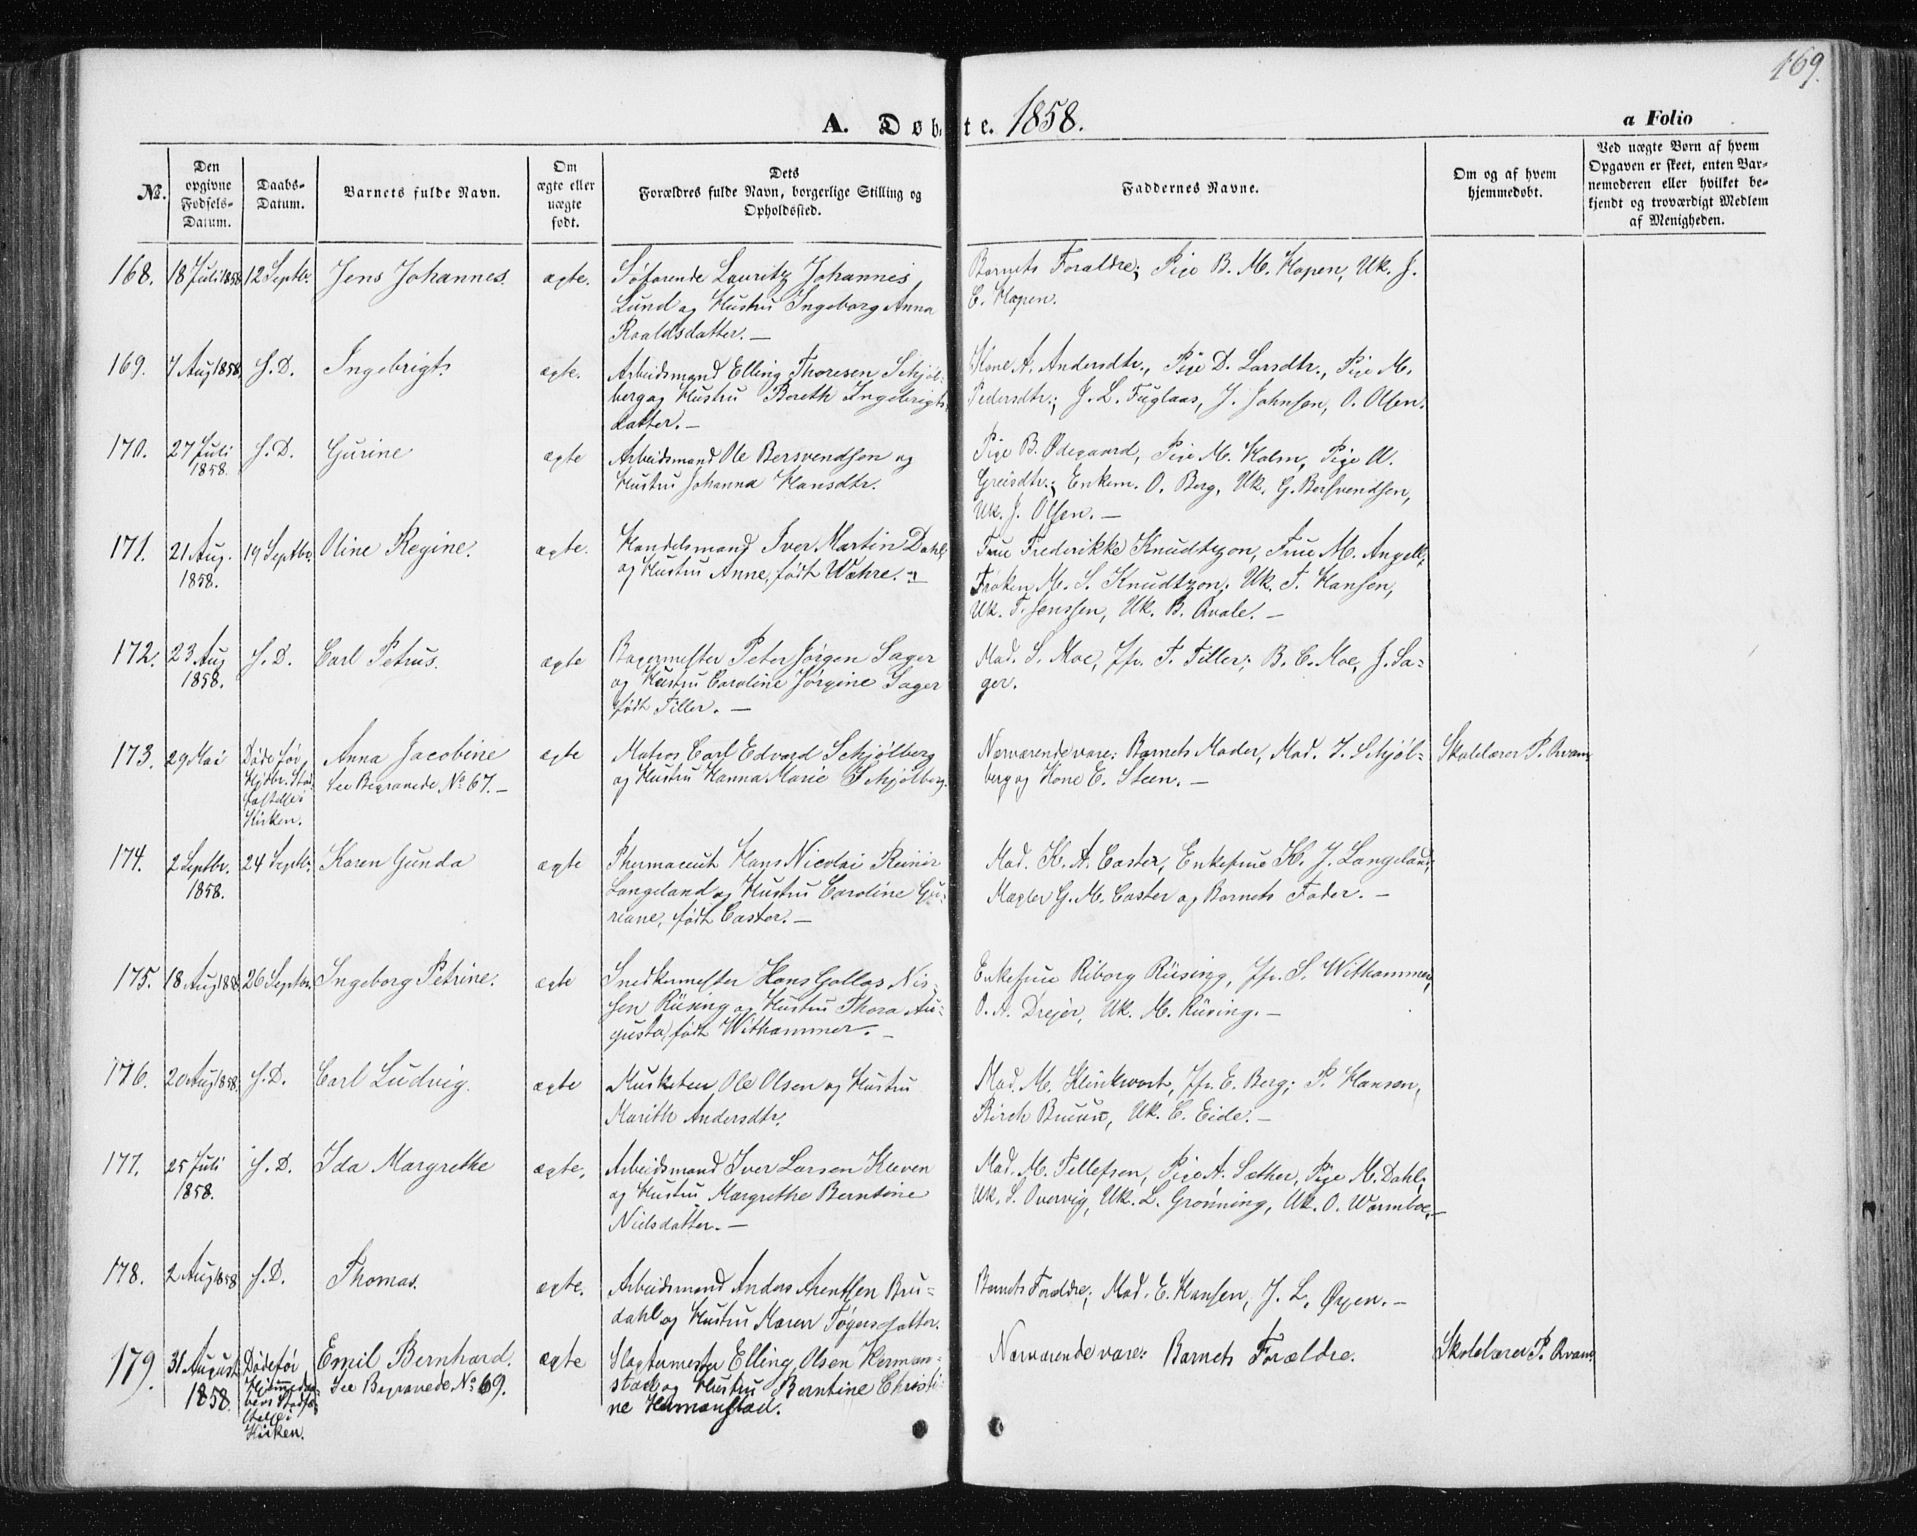 169.
A. Døbte. 1858.
a Folio
No.
Den opgivne Fødsels-Datum.
Daabs-Datum.
Barnets fulde Navn.
Om ægte eller uægte født.
Dets Forældres fulde Navn, borgerlige Stilling og Opholdssted.
Faddernes Navne.
Om og af hvem hjemmedøbt.
Ved uægte Børn af hvem Opgaven er skeet, enten Barnemoderen eller hvilket bekjendt og troværdigt Medlem af Menigheden.
168. 18 Juli 1858 12 Septbr. Jens Johannes. ægte. Søfarende Lauritz Johannes Barnets Forældre; Pige B. M. Hopen, Uk. J.
Lund og Hustru Ingeborg Anna C. Hopen.
Roaldsdatter. —
169. 7 Aug 1858. S. D. Ingebrigt. ægte. Arbeidsmand Elling Thoresen Schjøl- Kone A. Andersdtr., Pige D. Larsdtr., Pige M.
berg og Hustru Bereth Ingebrigts Pedersdtr.; J. L. Fuglaas, J. Johnsen, O. Olsen.
datter. —
170. 27 Juli 1858. S. D. Gurine ægte Arbeidsmand Ole Bersvendsen og Pige B. Ødegaard, Pige M. Holm, Pige A.
Hustru Johanna Hansdtr. Greisdtr.; Enkem. O. Berg, Uk. G. Bersvendsen,
Uk. J. Olsen. —
171. 21 Aug. 1858. 19 Septbr. Oline Regine. ægte. Handelsmand Iver Martin Dahl, Frue Frederikke Knudtzon, Frue M. Angell,
og Hustru Anne, født Wæhre. — Frøken M. S. Knudtzon; Uk. T. Hansen,
Uk. T. Jenssen, Uk. B. Qvale. —
172. 23 Aug 1858. S. D. Carl Petrus. ægte Bagermester Peter Jørgen Sager Mad. S. Moe, Jfr. T. Tiller; B. C. Moe, J. Sa-
og Hustru Caroline Jørgine Sager ger.
født Tiller. —
173. 29 Mai Døde før Anna Jacobine ægte Matros Carl Edvard Schjølberg Nærværende vare: Barnets Moder, Mad. I. Schjøl- Skolelærer P. Qvam
See Begravede No 67. — og Hustru Hanna Marie Schjølberg. berg og Kone E. Steen. —
Kirken.
174. 2 Septbr. 1858. 24 Septbr. Karen Gunda ægte Phermaceut Hans Nicolai Reinir Mad. K. A. Caster, Enkefrue K. J. Langeland,
Langeland og Hustru Caroline Gu- Mægler G. M. Caster og Barnets Fader. —
riane, født Caster. —
175. 18 Aug 1858 26 Septbr. Ingeborg Petrine. ægte Snedkermester Hans Gallas Nis- Enkefrue Riborg Rüsing, Jfr. S. Withammer,
sen Rüsing og Hustru Thora Au- O. A. Drejer, Uk. M. Rüsing. —
gusta, født Withammer. —
176. 20 Aug 1858. S. D. Carl Ludvig. ægte Musketeer Ole Olsen og Hustru Mad. M. Klinkwort, Jfr. E. Berg; P. Hansen,
Marith Andersdtr. Birch Bruun, Uk. C. Eide. —
177. 25 Juli 1858. S. D. Ida Margrethe ægte, Arbeidsmand Iver Larsen Kleven Mad. M. Tellefsen, Pige A. Sæther, Pige M. Dahl;
og Hustru Margrethe Berntine Uk. S. Overvig, Uk. L. Grønning, Uk. O. Warmboe. —
Nielsdatter. —
178. 2 Aug 1858 S. D. Thomas. ægte. Arbeidsmand Anders Arentsen Bru- Barnets Forældre; Mad. E. Hansen, J. L. Øyen. —
dahl og Hustru Karen Tøgersdatter.
179. 31 August 1858. Døde før Emil Bernhard. ægte Slagtermester Elling Olsen Herman- Nærværende vare: Barnets Forældre. Skolelærer P. Qvam
See Begravede No 69. stad og Hustru Berntine Christi-
Kirken. ne Hermanstad.